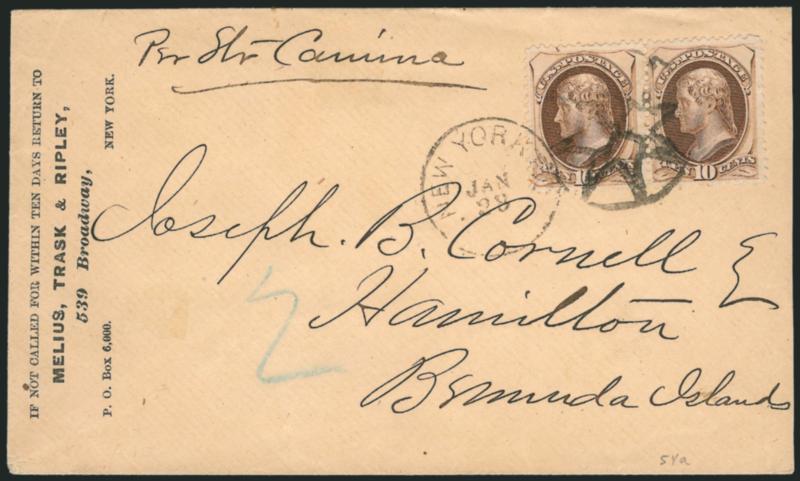 IF NOT CALLED FOR WITHIN TEN DAYS RETURN TO
MELIUS, TRASK & RIPLEY,
539 Broadway,
P. O. Box 6,000. NEW YORK.
Per Str Canima
U.S. POSTAGE
U.S. POSTAGE
10 CENTS
NEW YORK
JAN
28
Joseph. B. Cornell E
Hamilton
Bermuda Islands
2
54a